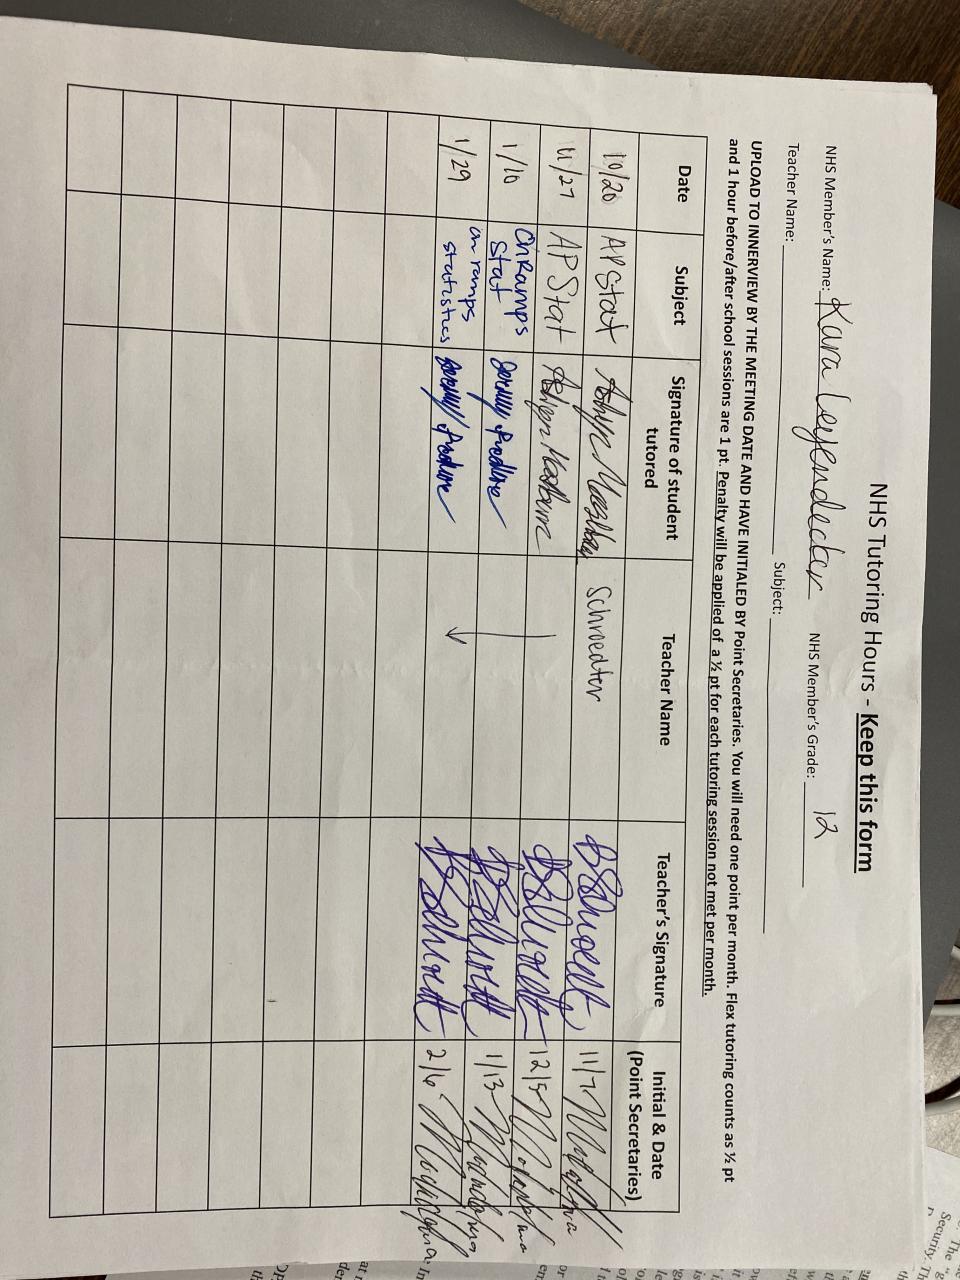 NHS Tutoring Hours - Keep this form
NHS Member's Name: Kara Leyendecker NHS Member's Grade: 12
Teacher Name: Subject:
UPLOAD TO INNERVIEW BY THE MEETING DATE AND HAVE INITIALED BY Point Secretaries. You will need one point per month. Flex tutoring counts as ½ pt
and 1 hour before/after school sessions are 1 pt. Penalty will be applied of a ½ pt for each tutoring session not met per month.
Date Subject Signature of student tutored Teacher Name Teacher's Signature Initial & Date (Point Secretaries)
10/20 AP Stat Schroedter 11/7
11/27 AP Stat 12/5
1/10 OnRamps Stat 1/13
1/29 on ramps statistics 2/6